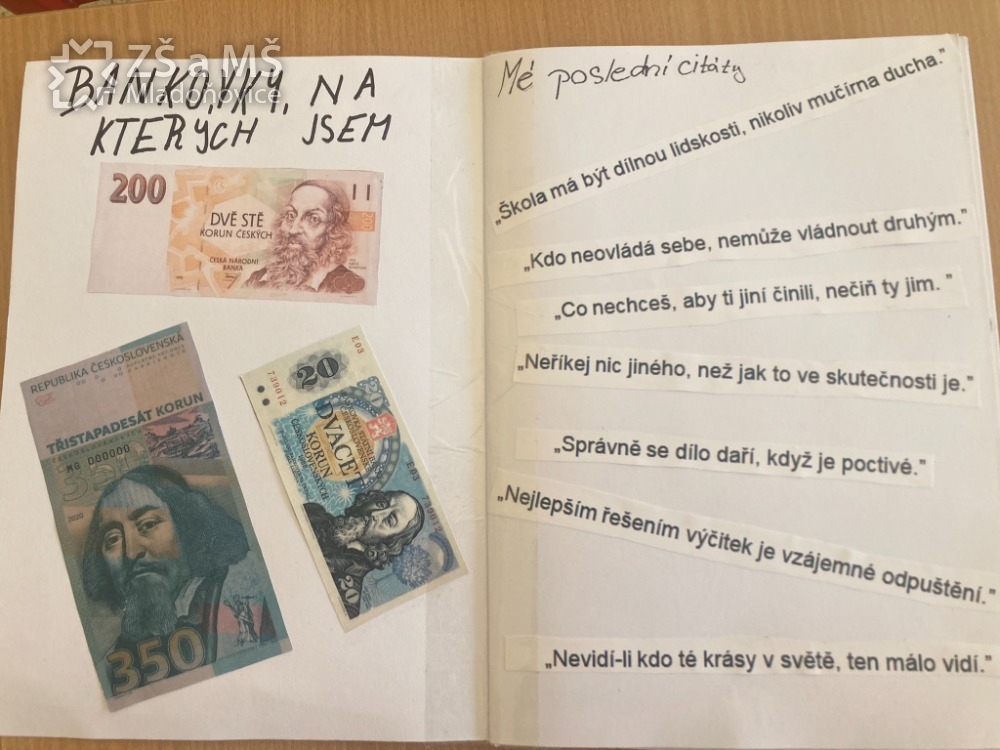 ZŠ a MŠ
Mladoňovice
BANKOVKY, NA
KTERÝCH JSEM
200
DVĚ STĚ
KORUN ČESKÝCH
ČESKÁ NÁRODNÍ
BANKA
REPUBLIKA ČESKOSLOVENSKÁ
TŘISTAPADESÁT KORUN
MG 000000
2020
350
20
E03
739012
DVACET
KORUN
ČESKOSLOVENSKÝCH
E03
739012
20
Mé poslední citáty
„Škola má být dílnou lidskosti, nikoliv mučírna ducha.”
„Kdo neovládá sebe, nemůže vládnout druhým.”
„Co nechceš, aby ti jiní činili, nečiň ty jim. ”
„Neříkej nic jiného, než jak to ve skutečnosti je.”
„Správně se dílo daří, když je poctivé.”
„Nejlepším řešením výčitek je vzájemné odpuštění.”
„Nevidí-li kdo té krásy v světě, ten málo vidí.”